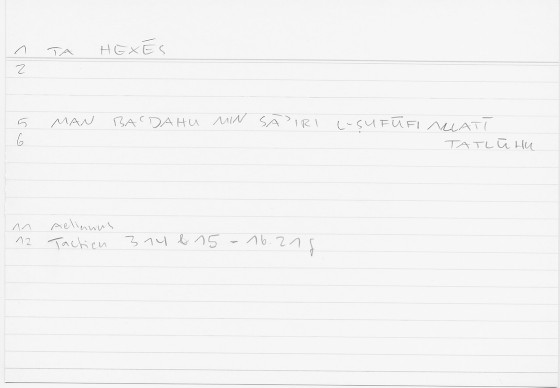 1 TA HEXĒS
2
5 MAN BAʿDAHU MIN SĀʾIRI L-ṢUFŪFI ALLATĪ
6 TATLŪHU
11 Aelianus
12 Tactica 3 14 & 15 - 16 21 f